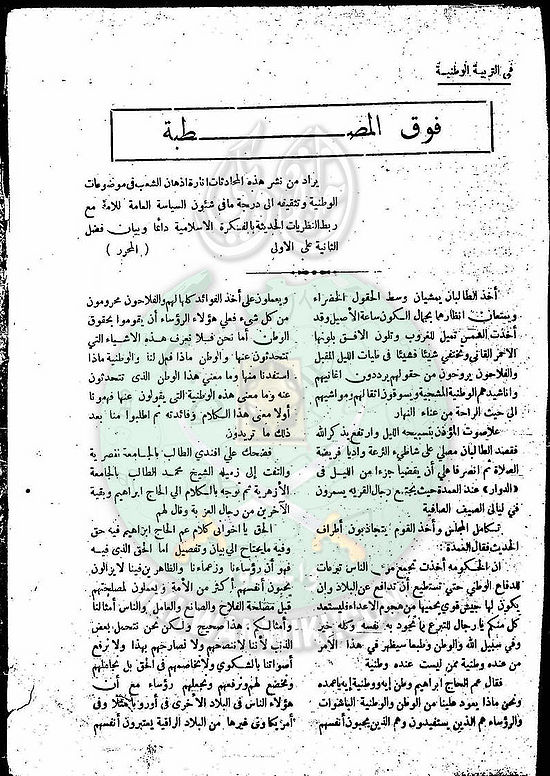 فى التربية الوطنية
فوق المصطبة
يراد من نشر هذه المحادثات انارة اذهان الشعب فى موضوعات
الوطنية وتثقيفه الى درجة ما فى شئون السياسة العامة للامة مع
ربط النظريات الحديثة بالفكرة الاسلامية دائما وبيان فضل
الثانية على الاولى ( المحرر )
أخذ الطالبان يمشيان وسط الحقول الخضراء
ويمتعان انظارهما بجمال السكون ساعة الأصيل وقد
أخذت الشمس تميل للغروب وتلون الافق بلونها
الاحمر القانى وتختفى شيئا فشيئا فى طيات الليل المقبل
والفلاحون يروحون من حقولهم يرددون اغانيهم
واناشيدهم الوطنية المشجية ويسوقون اثقالهم ومواشيهم
الى حيث الراحة من عناء النهار
علا صوت المؤذن بتسبيحه الليل وارتفع بذكر الله
فقصد الطالبان مصلى على شاطىء الترعة واديا فريضة
الصلاة ثم انصرفا على أن يقضيا جزءا من الليل فى
«الدوار» عند العمدة حيث يجتمع رجال القرية يسمرون
فى ليالى الصيف الصافية
تكامل المجلس وأخذ القوم يتجاذبون أطراف
الحديث فقال العمدة :
ان الحكومة أخذت تجمع من الناس تبرعات
للدفاع الوطنى حتى تستطيع أن تدافع عن البلاد وان
يكون لها جيش قوى يحميها من هجوم الاعداء فليستعد
كل منكم يا رجال للتبرع بما تجود به نفسه وكله خير
وفى سبيل الله والوطن وطبعا سيظهر فى هذا الامر
من عنده وطنية ممن ليست عنده وطنية
فقال عم الحاج ابراهيم وطن إيه ووطنية إيه يا عمده
ونحن ماذا يعود علينا من الوطن والوطنية الباشوات
والرؤساء هم الذين يستفيدون وهم الذين يحبون أنفسهم
ويعملون على أخذ الفوائد كلها لهم والفلاحون محرومون
من كل شىء فعلى هؤلاء الرؤساء أن يقوموا بحقوق
الوطن أما نحن فلا نعرف هذه الاشياء التى
تتحدثون عنها والوطن ماذا فعل لنا والوطنية ماذا
استفدنا منها وما معنى هذا الوطن الذى تتحدثون
عنه وما معنى هذه الوطنية التى يقولون عنها فهمونا
أولا معنى هذا الكلام وفائدته ثم اطلبوا منا بعد
ذلك ما تريدون
فضحك على افندى الطالب بالجامعة المصرية
والتفت إلى زميله الشيخ محمد الطالب بالجامعة
الأزهرية ثم توجه بالكلام الى الحاج ابراهيم وبقية
الآخرين من رجال العزبة وقال لهم
الحق يا اخوانى كلام عم الحاج ابراهيم فيه حق
وفيه ما يحتاج الى بيان وتفصيل اما الحق الذى فيه
فهو أن رؤساءنا وزعماءنا والظاهرين فينا لا يزالون
يحبون أنفسهم أكثر من الأمة ويعملون لمصلحتهم
قبل مصلحة الفلاح والصانع والعامل والناس أمثالنا
وأمثالكم هذا صحيح ولكن نحن نتحمل بعض
الذنب لأننا لا ننصحهم ولا نصارحهم بهذا ولا نرفع
أصواتنا بالشكوى ولا نخاصمهم فى الحق بل نجاملهم
ونخضع لهم ونرفعهم ونجعلهم رؤساء مع أن
هؤلاء الناس فى البلاد الاخرى فى أوروبا مثلا وفى
أمريكا وفى غيرها من البلاد الراقية يعتبرون أنفسهم